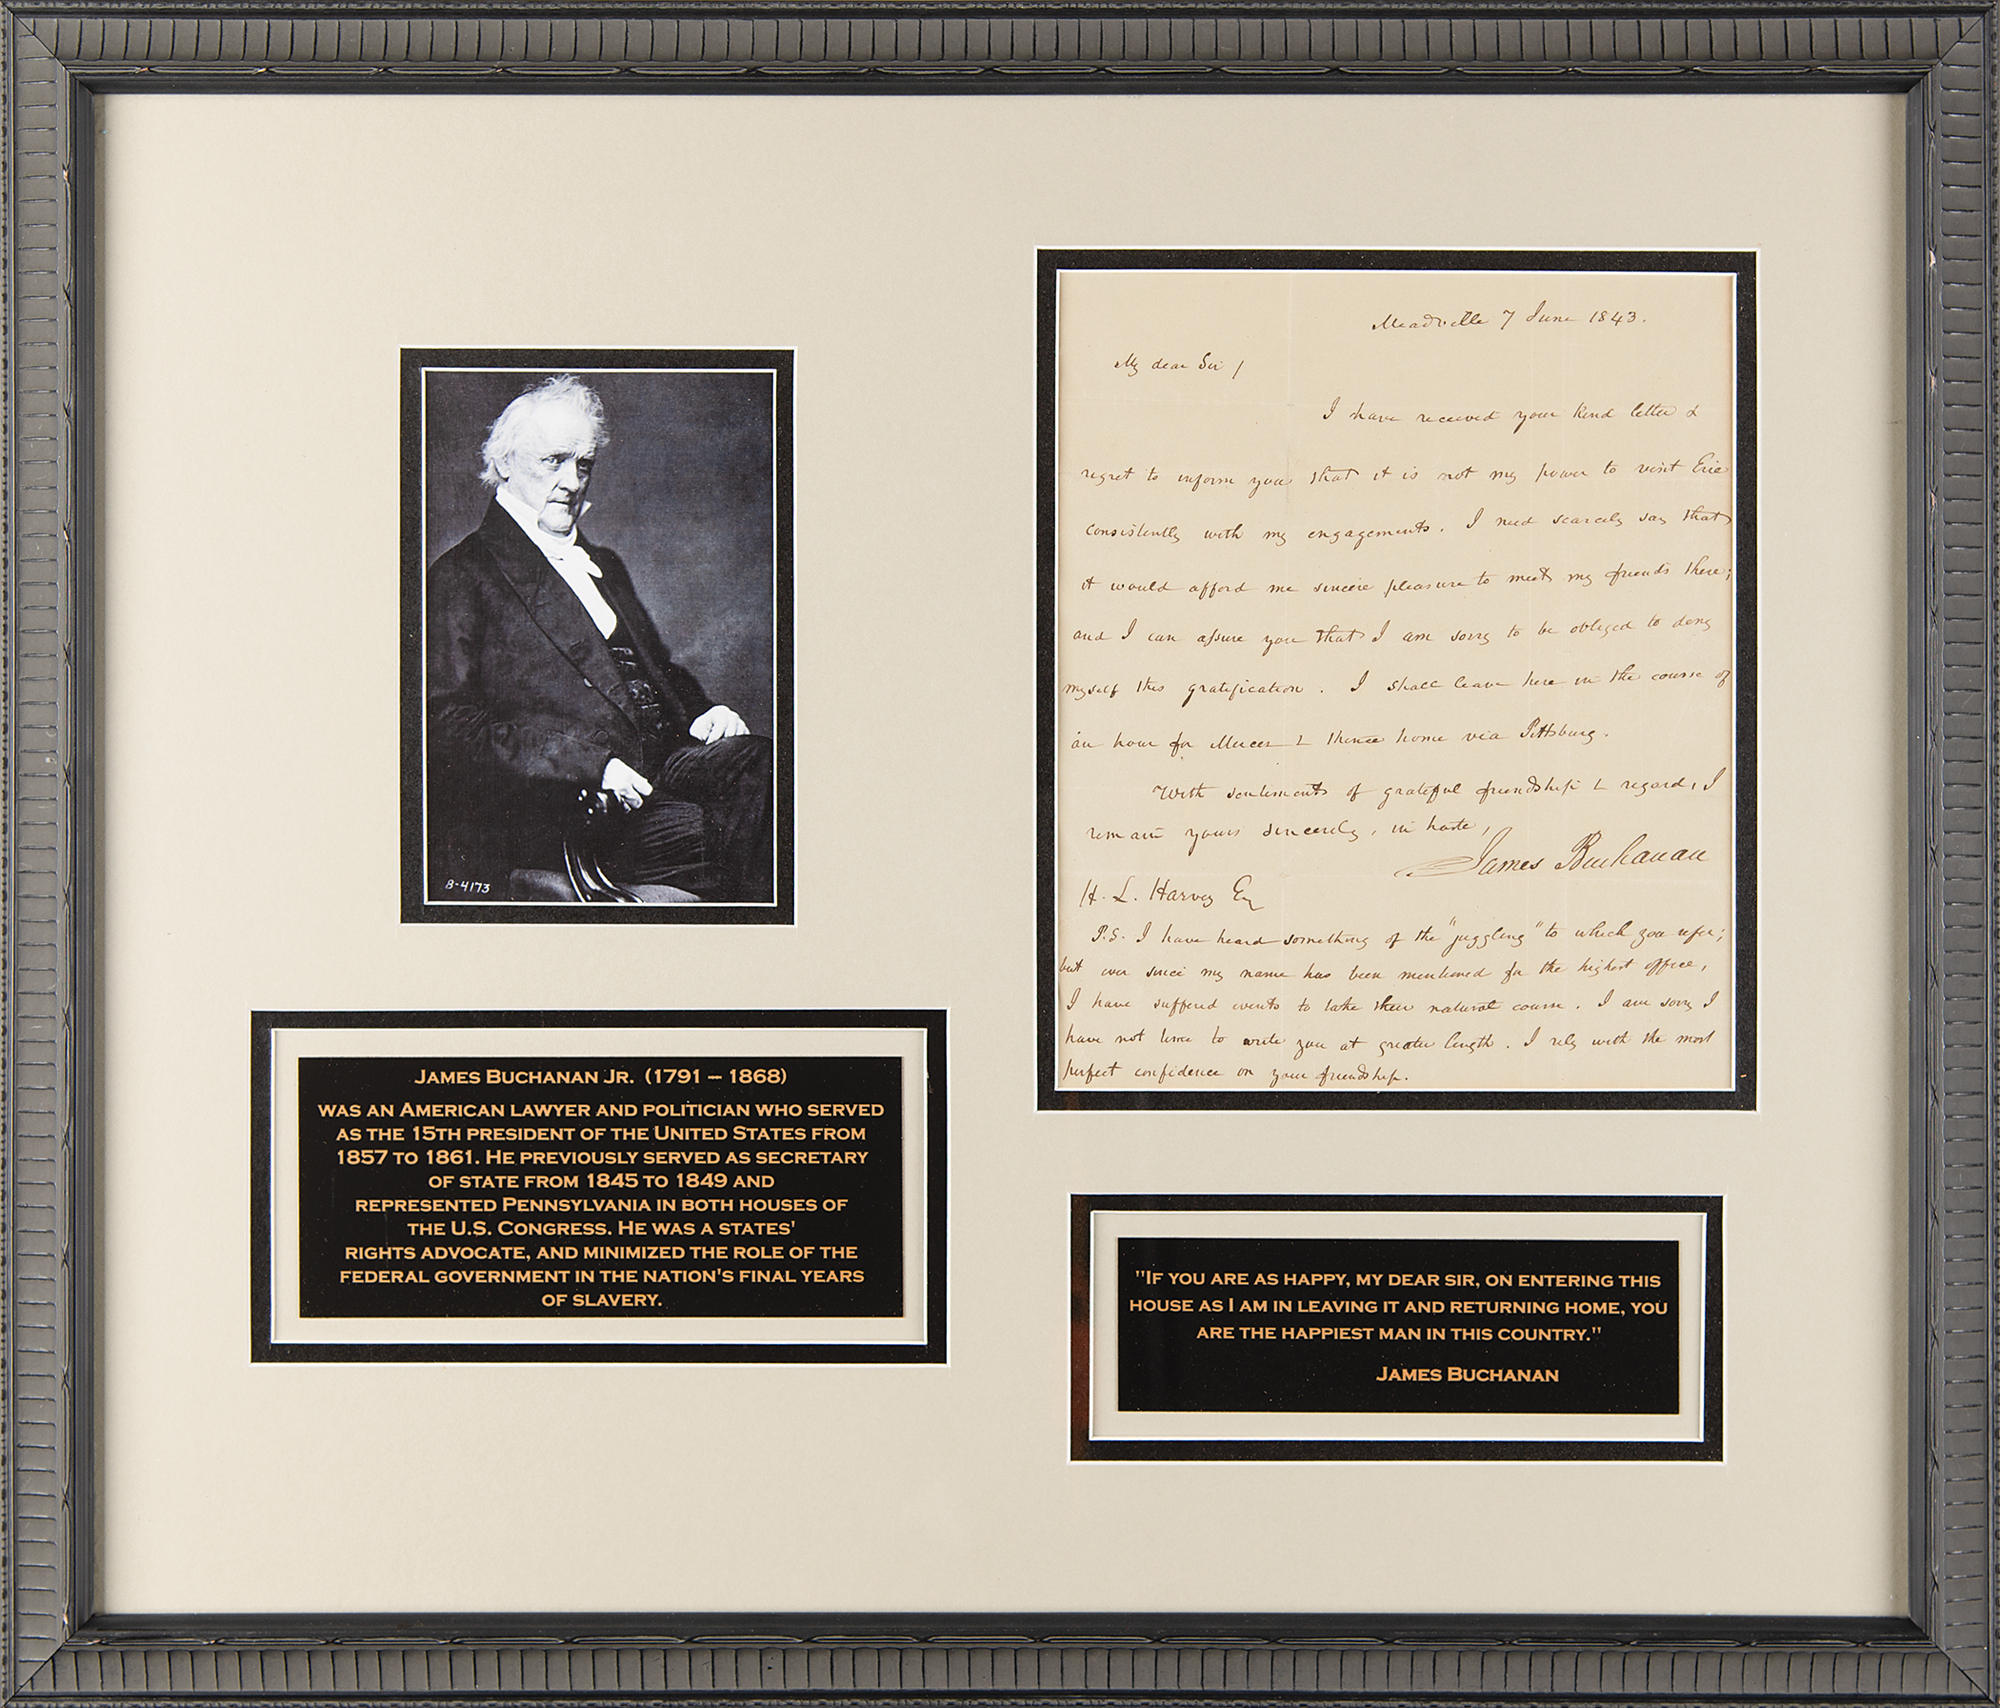 B-4173
JAMES BUCHANAN JR. (1791 – 1868)
WAS AN AMERICAN LAWYER AND POLITICIAN WHO SERVED
AS THE 15TH PRESIDENT OF THE UNITED STATES FROM
1857 TO 1861. HE PREVIOUSLY SERVED AS SECRETARY
OF STATE FROM 1845 TO 1849 AND
REPRESENTED PENNSYLVANIA IN BOTH HOUSES OF
THE U.S. CONGRESS. HE WAS A STATES'
RIGHTS ADVOCATE, AND MINIMIZED THE ROLE OF THE
FEDERAL GOVERNMENT IN THE NATION'S FINAL YEARS
OF SLAVERY.
Meadville 7 June 1843.
My dear Sir/
I have received your kind letter &
regret to inform you that it is not my power to visit Erie
consistently with my engagements. I need scarcely say that
it would afford me sincere pleasure to meet my friends there;
and I can assure you that I am sorry to be obliged to deny
myself this gratification. I shall leave here in the course of
an hour for Mercer & thence home via Pittsburg.
With sentiments of grateful friendship & regard, I
remain yours sincerely, in haste,
James Buchanan
H. L. Harvey Esq
P.S. I have heard something of the "juggling" to which you refer;
but ever since my name has been mentioned for the highest office,
I have suffered events to take their natural course. I am sorry I
have not time to write you at greater length. I rely with the most
perfect confidence on your friendship.
"IF YOU ARE AS HAPPY, MY DEAR SIR, ON ENTERING THIS
HOUSE AS I AM IN LEAVING IT AND RETURNING HOME, YOU
ARE THE HAPPIEST MAN IN THIS COUNTRY."
JAMES BUCHANAN